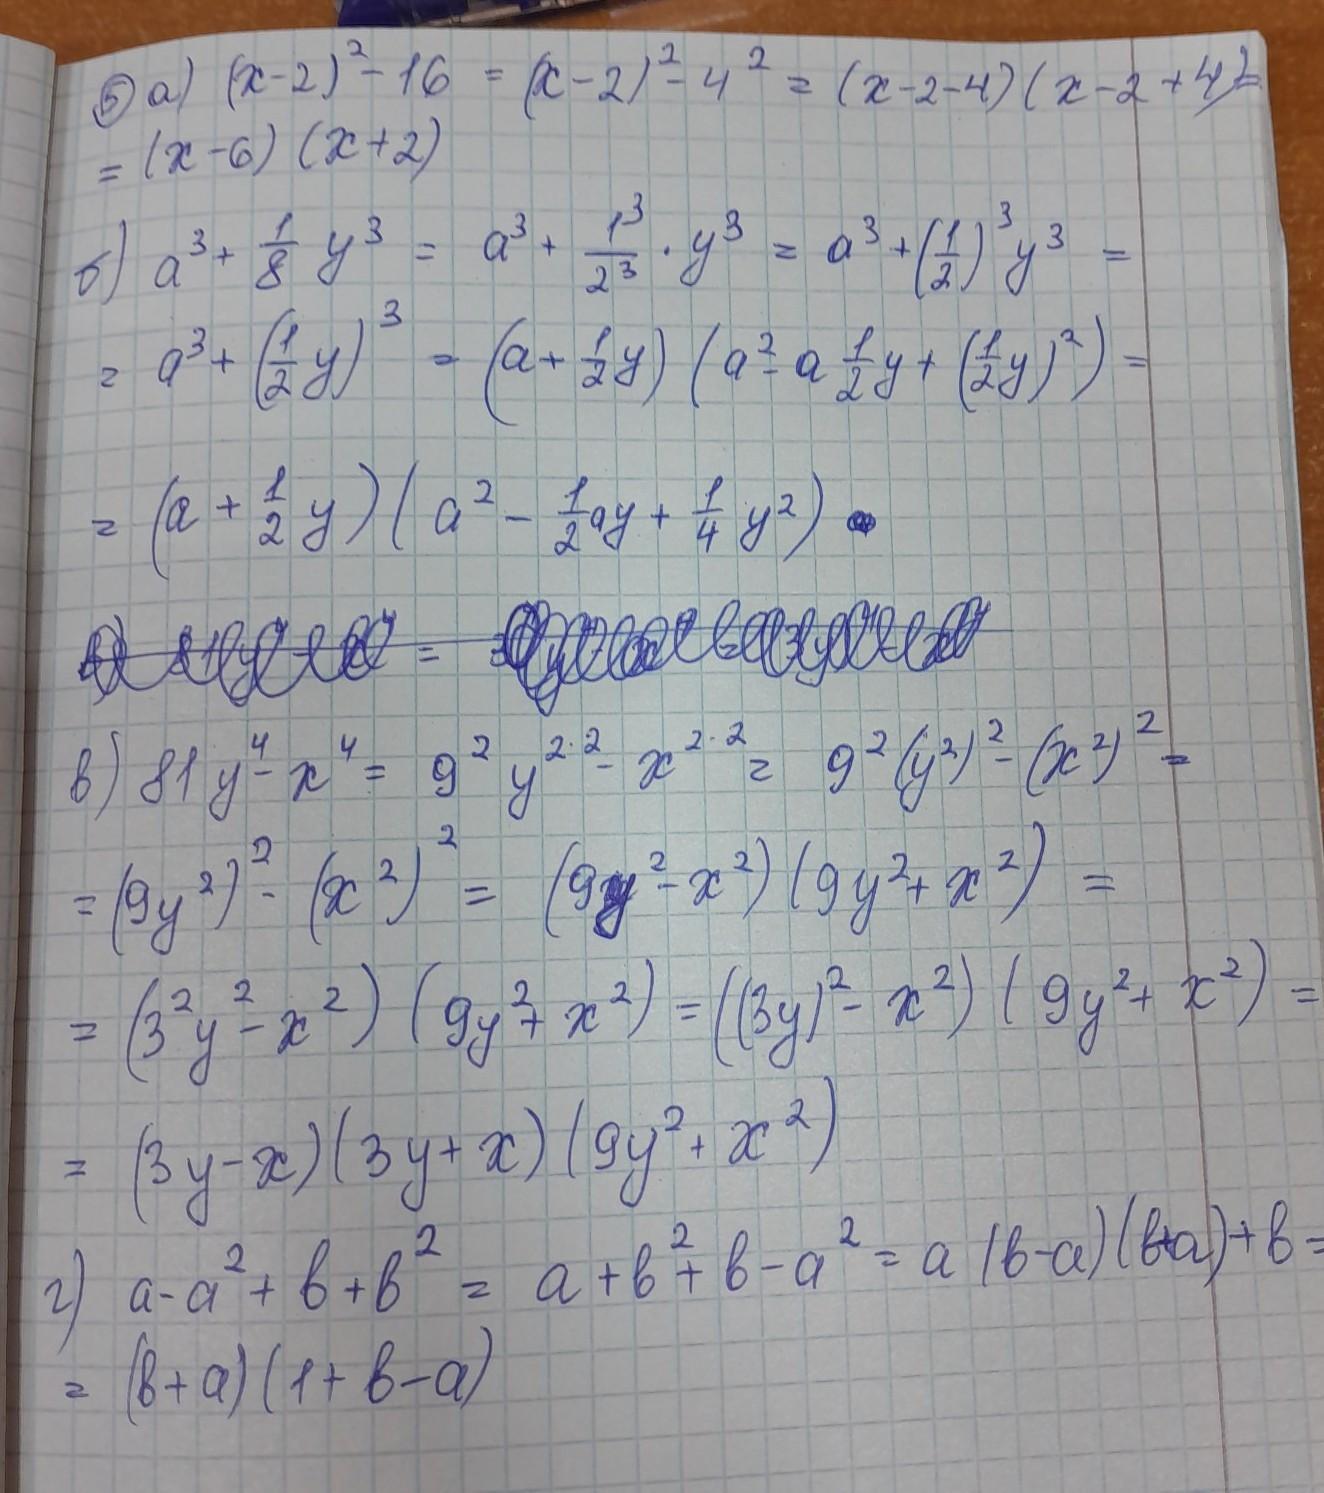 5) а) (x-2)² - 16 = (x-2)² - 4² = (x-2-4)(x-2+4) =
= (x-6) (x+2)
б) a³ + 1/8 y³ = a³ + 1³/2³ · y³ = a³ + (1/2)³ y³ =
= a³ + (1/2 y)³ = (a + 1/2 y) (a² - a 1/2 y + (1/2 y)²) =
= (a + 1/2 y) (a² - 1/2 ay + 1/4 y²)
в) 81y⁴ - x⁴ = 9² y²·² - x²·² = 9² (y²)² - (x²)² =
= (9y²)² - (x²)² = (9y² - x²) (9y² + x²) =
= (3²y² - x²) (9y² + x²) = ((3y)² - x²) (9y² + x²) =
= (3y - x) (3y + x) (9y² + x²)
г) a - a² + b + b² = a + b² + b - a² = a (b-a) (b+a) + b =
= (b+a) (1 + b - a)